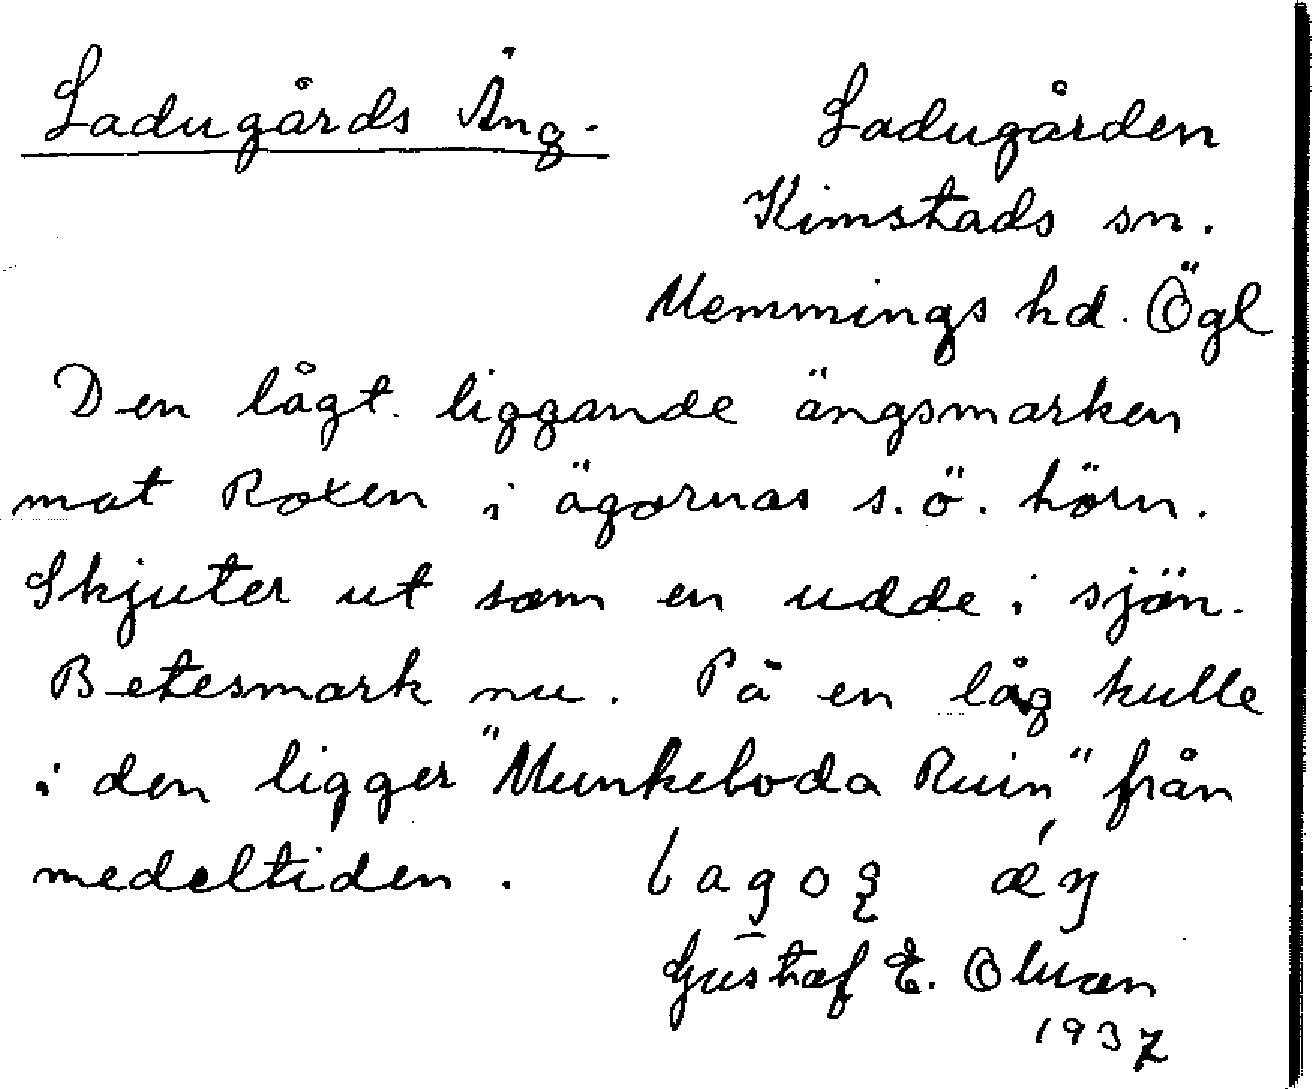 Ladugårds Äng.
Ladugården
Kimstads sn.
Memmings hd. Ögl
Den lågt liggande ängsmarken
mot Roxen i ägornas s.ö. hörn.
Skjuter ut som en udde i sjön.
Betesmark nu. På en låg kulle
i den ligger "Munkeboda Ruin" från
medeltiden.
Gustaf E. Olman
1937